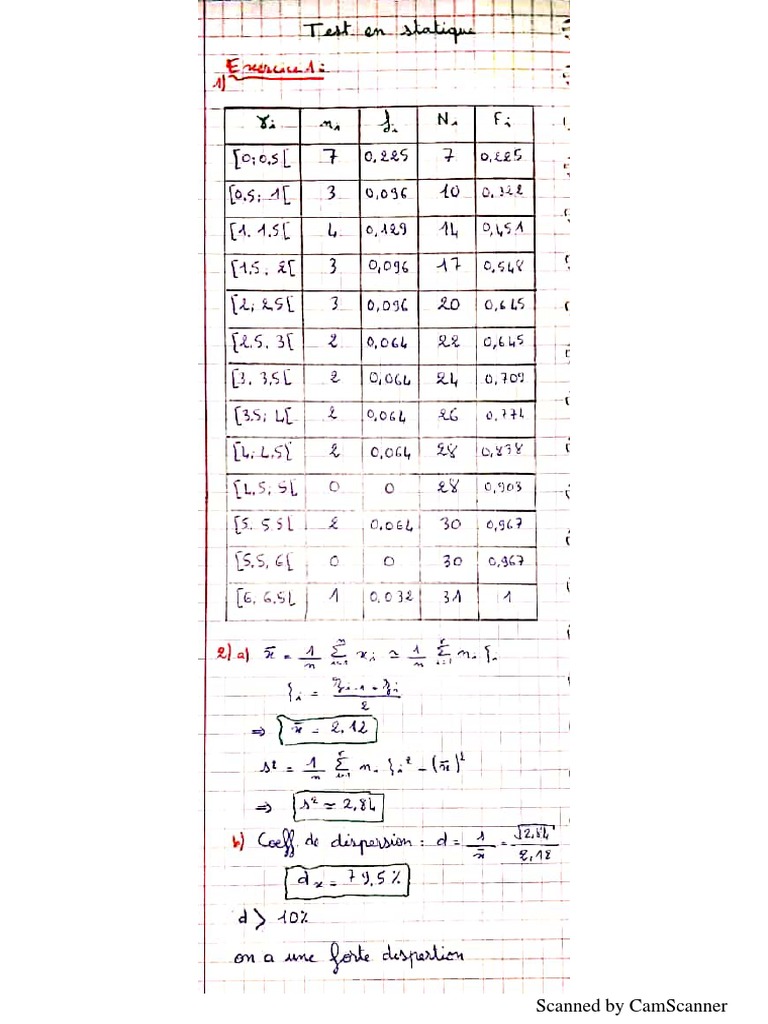 Test en statique
Exercice 1:
1)
γi ni fi Ni Fi
[0; 0,5[ 7 0,225 7 0,225
[0,5; 1[ 3 0,096 10 0,322
[1. 1.5[ 4 0,129 14 0,451
[1,5. 2[ 3 0,096 17 0,548
[2; 2,5[ 3 0,096 20 0,645
[2.5. 3[ 2 0,064 22 0,645
[3. 3,5[ 2 0,064 24 0,709
[3,5; 4[ 2 0,064 26 0,774
[4; 4,5[ 2 0,064 28 0,838
[4,5; 5[ 0 0 28 0,903
[5. 5.5[ 2 0,064 30 0,967
[5.5, 6[ 0 0 30 0,967
[6. 6,5[ 1 0,032 31 1
2) a) x̄ = 1/n Σ xi ≃ 1/n Σ ni ξi
ξi = (zi-1 + zi)/2
⇒ x̄ = 2.12
s² = 1/n Σ ni ξi² - (x̄)²
⇒ s² ≃ 2,84
b) Coeff de dispersion : d = s/x̄ = √2,84/2,12
dx = 79,5 %
d > 10%
on a une forte dispertion
Scanned by CamScanner